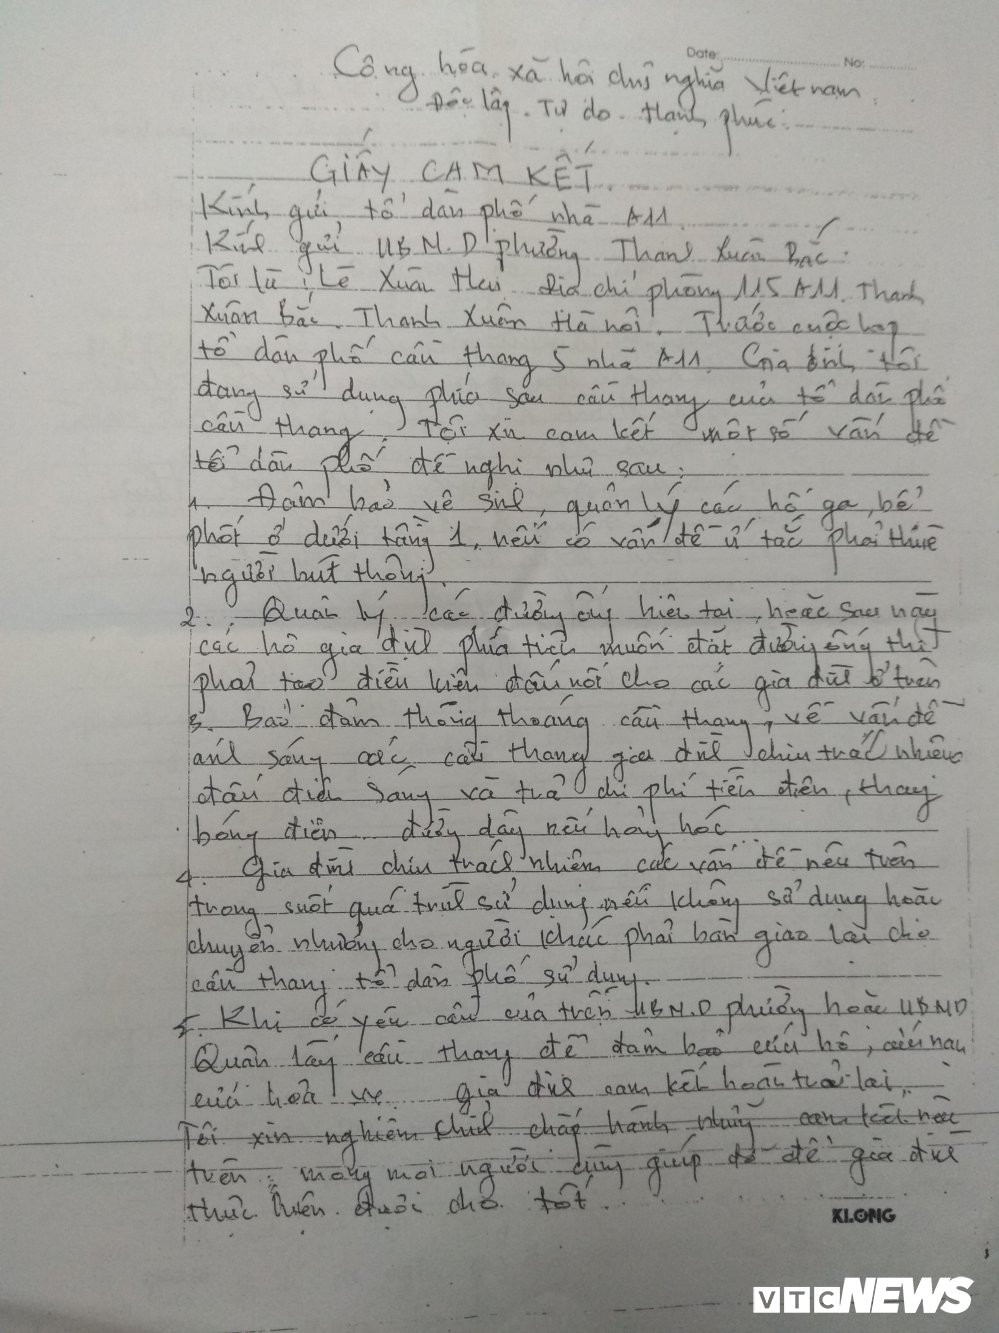 Date: No:
Cộng hòa xã hôi chủ nghĩa Việt nam
Độc lập. Tự do. Hạnh phúc.
GIẤY CAM KẾT.
Kính gửi tổ dân phố nhà A11.
Kính gửi UBN.D phường Thanh Xuân Bắc.
Tôi là: Lê Xuân Địa chỉ phòng 115 A11. Thanh
Xuân Bắc. Thanh Xuân Hà nội. Trước cuộc họp
tổ dân phố cầu thang 5 nhà A11. Gia đình tôi
đang sử dụng phía sau cầu thang của tổ dân phố
cầu thang. Tôi xin cam kết một số vấn đề
tổ dân phố đề nghị như sau:
1. Đảm bảo vệ sinh, quản lý các hố ga, bể
phốt ở dưới tầng 1, nếu có vấn đề ứ tắc phải thuê
người hút thông.
2. Quản lý các đường ống hiện tại, hoặc sau này
các hộ gia đình phía trên muốn đặt đường ống thì
phải tạo điều kiện đấu nối cho các gia đình ở trên
3. Bảo đảm thông thoáng cầu thang, về vấn đề
ánh sáng các cầu thang gia đình chịu trách nhiệm
đấu điện sáng và trả chi phí tiền điện, thay
bóng điện đường dây nếu hỏng hóc
4. Gia đình chịu trách nhiệm các vấn đề nêu trên
trong suốt quá trình sử dụng nếu không sử dụng hoặc
chuyển nhượng cho người khác phải bàn giao lại cho
cầu thang tổ dân phố sử dụng.
5. Khi có yêu cầu của trên UBN.D phường hoặc UBND
Quận lấy cầu thang để đảm bảo cứu hộ, cứu nạn
cứu hoả vv gia đình cam kết hoàn trả lại.
Tôi xin nghiêm chỉnh chấp hành những cam kết nêu
trên, mong mọi người cùng giúp đỡ để gia đình
thực hiện được cho tốt.
KLONG
VTC NEWS